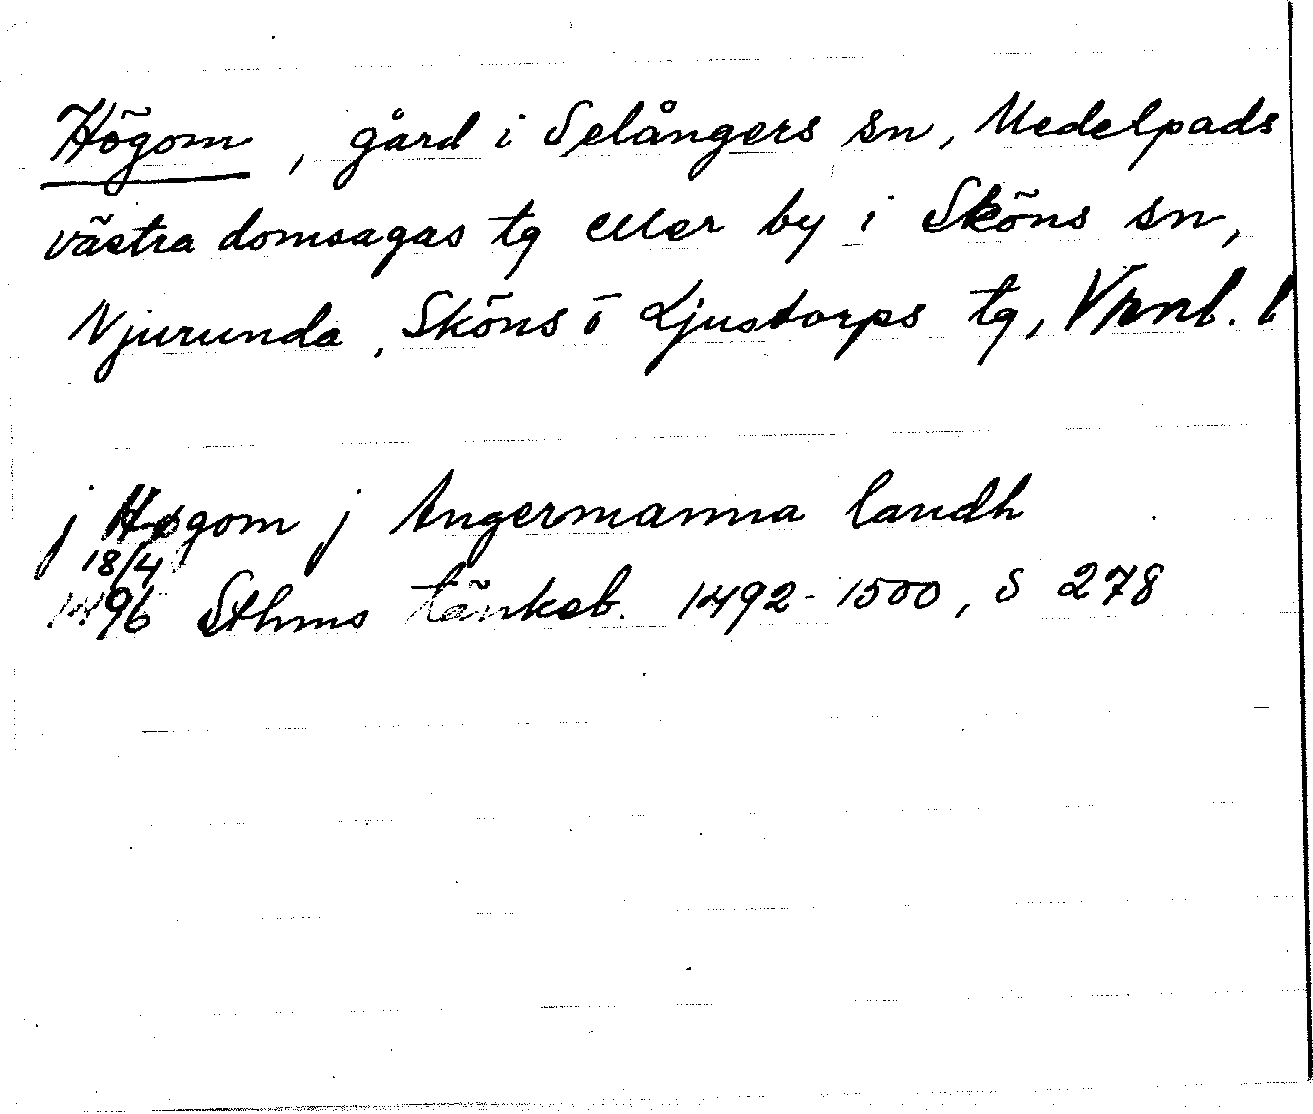 Högom, gård i Selångers sn, Medelpads
västra domsagas tg eller by i Sköns sn,
Njurunda, Sköns o Ljustorps tg, Vrnl. l
j Høgom j Angermanna landh
18/4
1496 Sthms tänkeb. 1492-1500, s 278